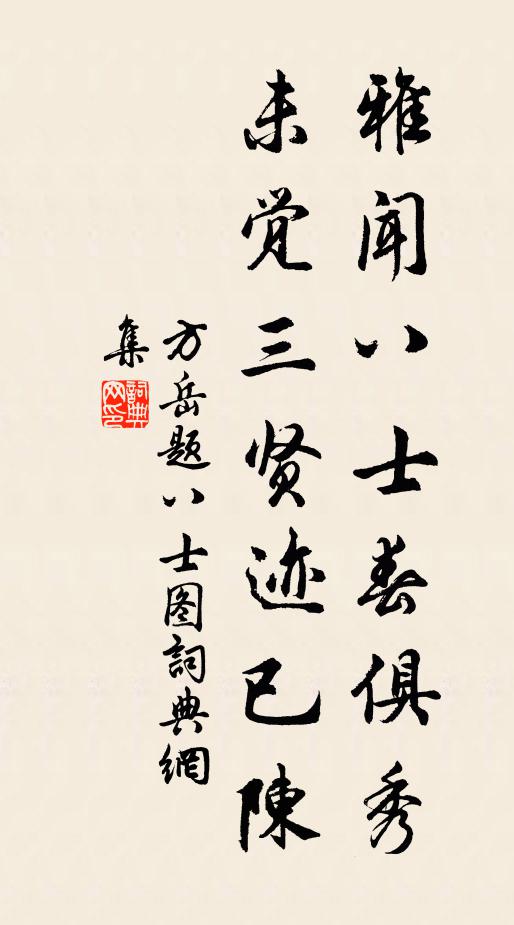 雅闻八士春俱秀
未觉三贤迹已陳
方岳题八士图詞典網
集
詞典网印